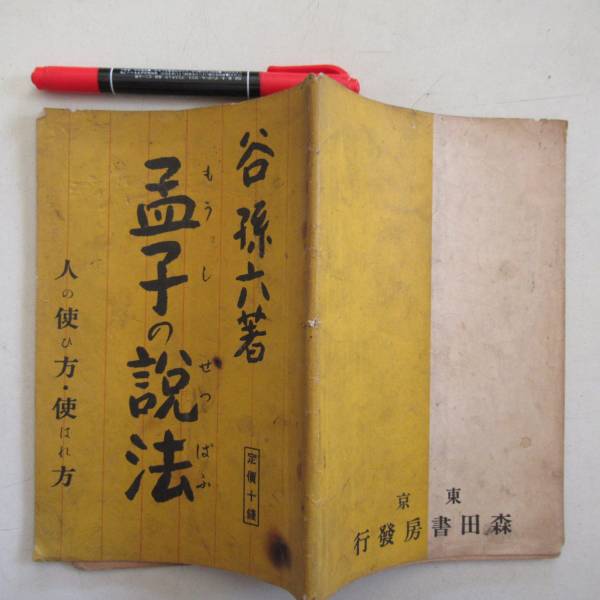 谷孫六著
もうし せつぱふ
孟子の說法
人の使ひ方・使はれ方
定價十錢
東京
森田書房發行